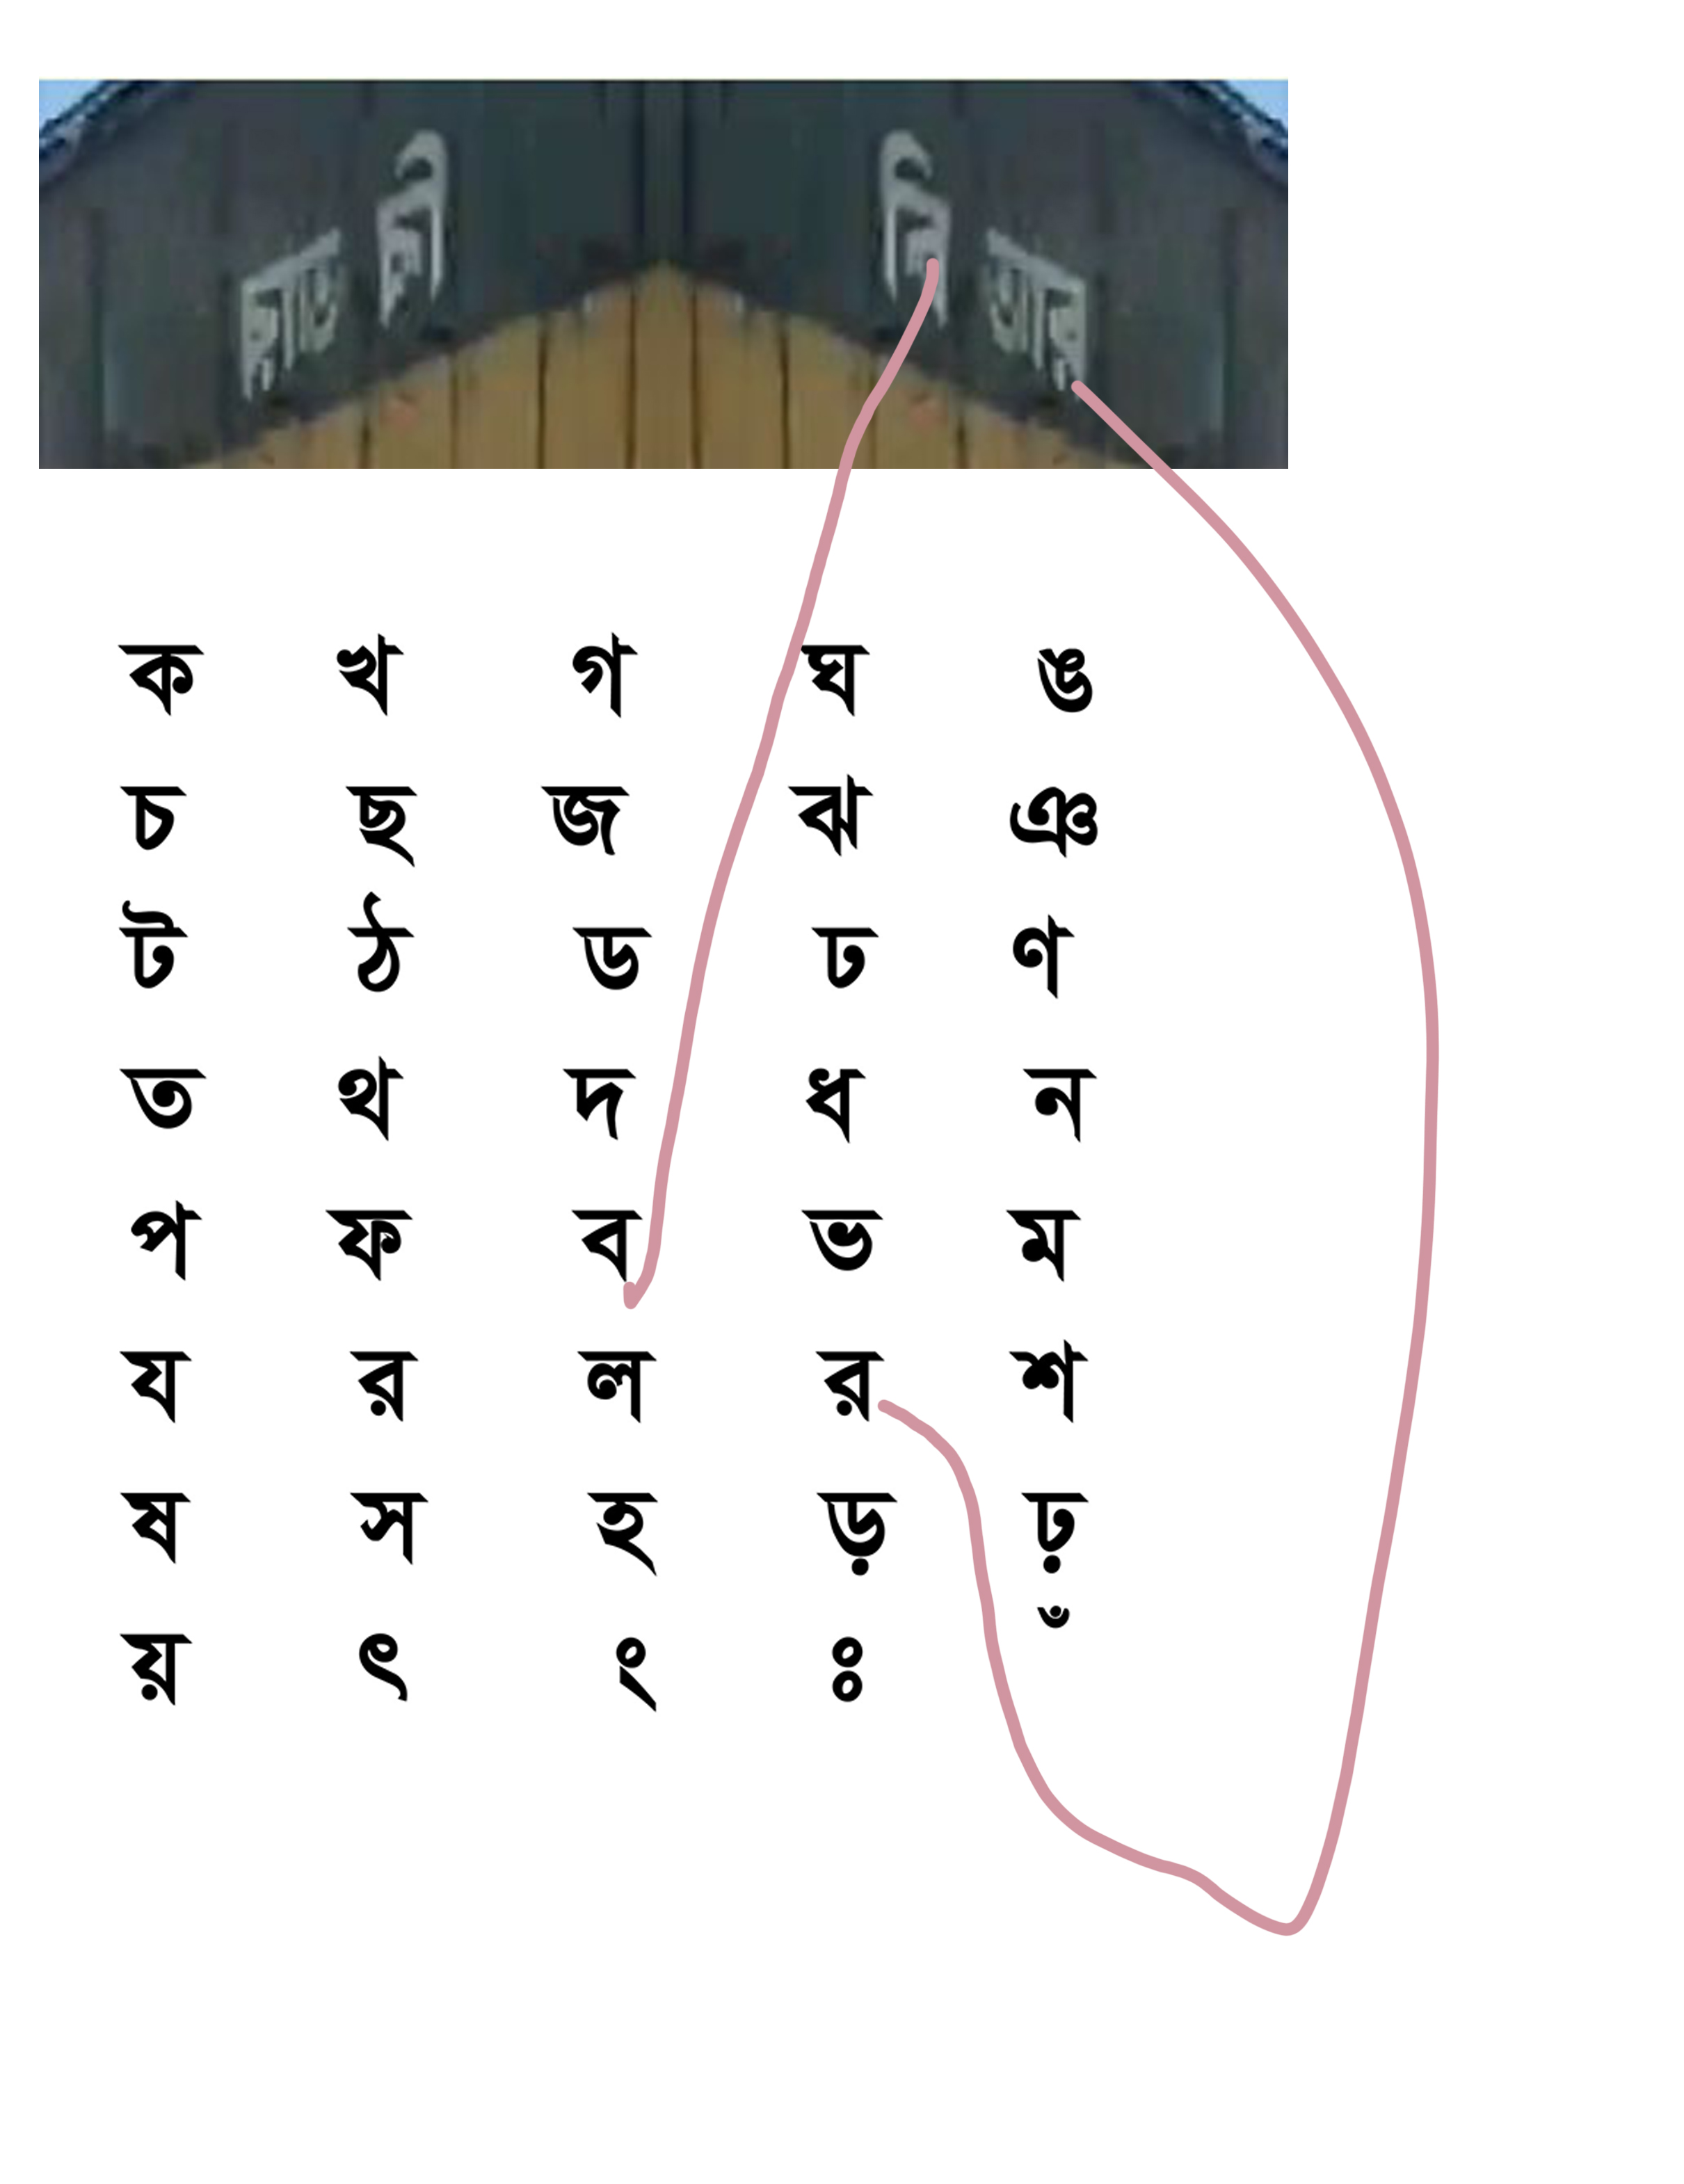 ক খ গ ঘ ঙ
চ ছ জ ঝ ঞ
ট ঠ ড ঢ ণ
ত থ দ ধ ন
প ফ ব ভ ম
য র ল র শ
ষ স হ ড় ঢ়
য় ৎ ং ঃ ঁ